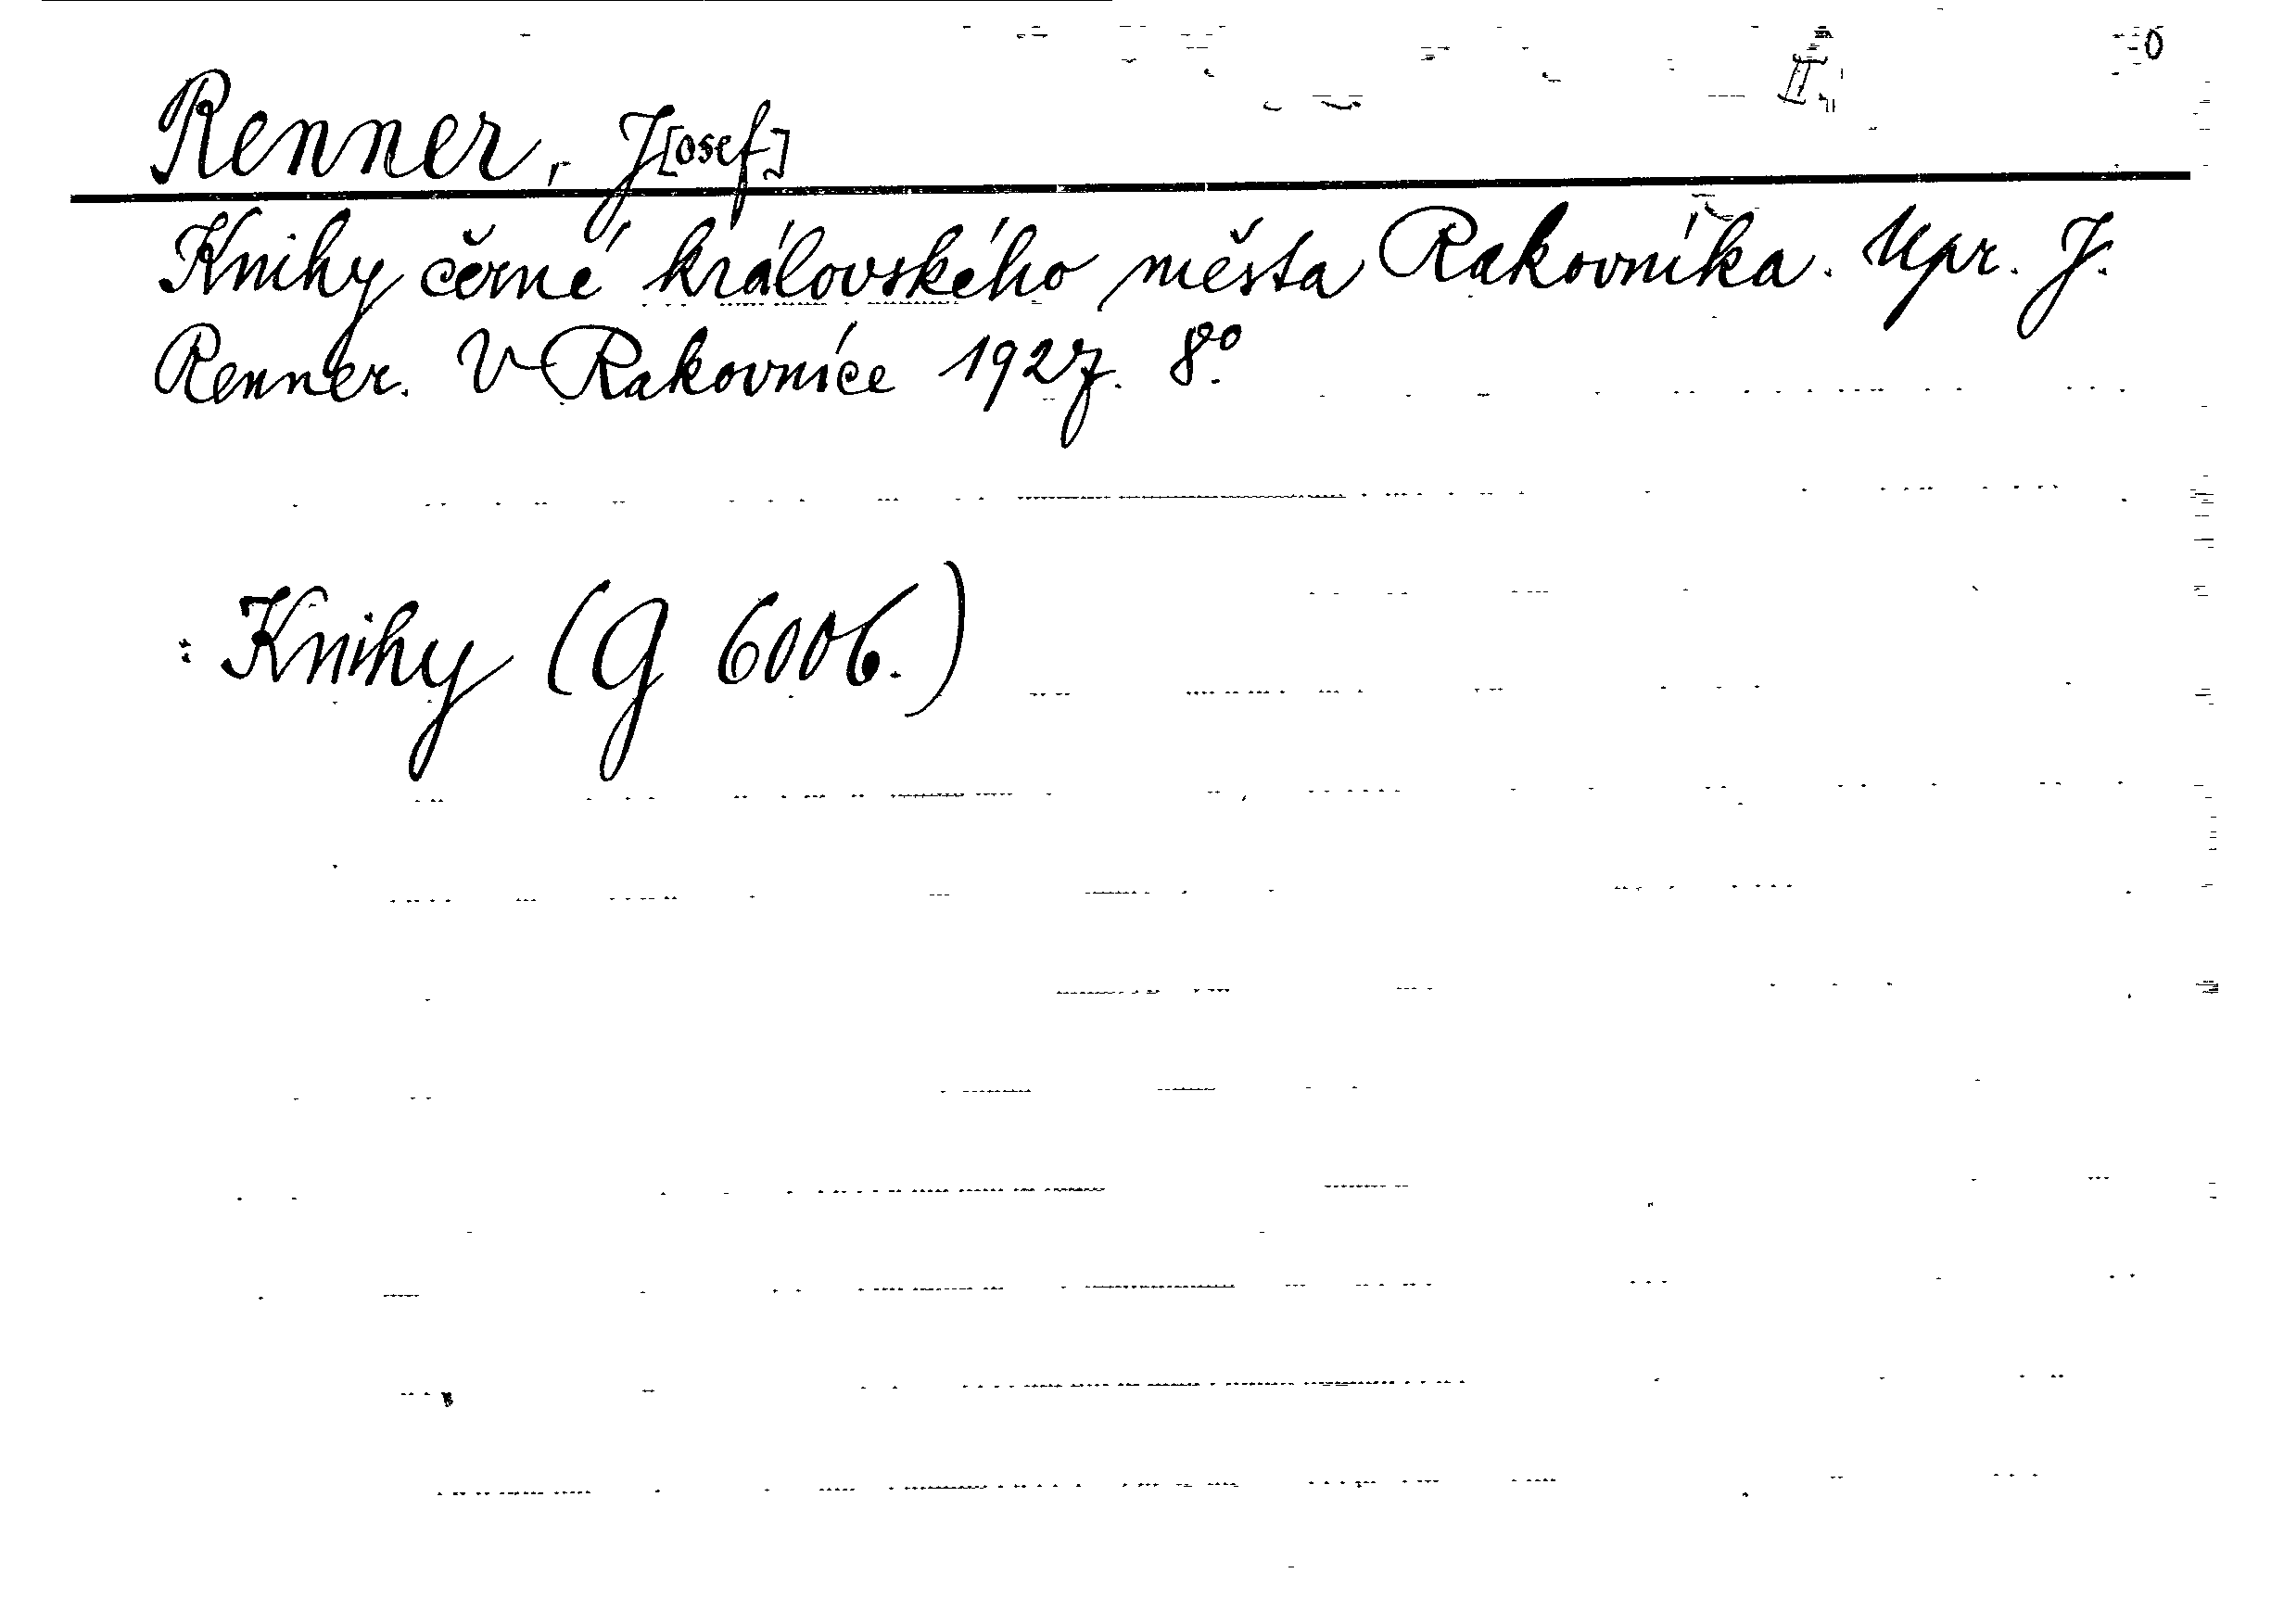 II.
Renner, J[osef]
Knihy černé královského města Rakovníka. Upr. J.
Renner. V Rakovníce 1927. 8°.
: Knihy (G 6006.)